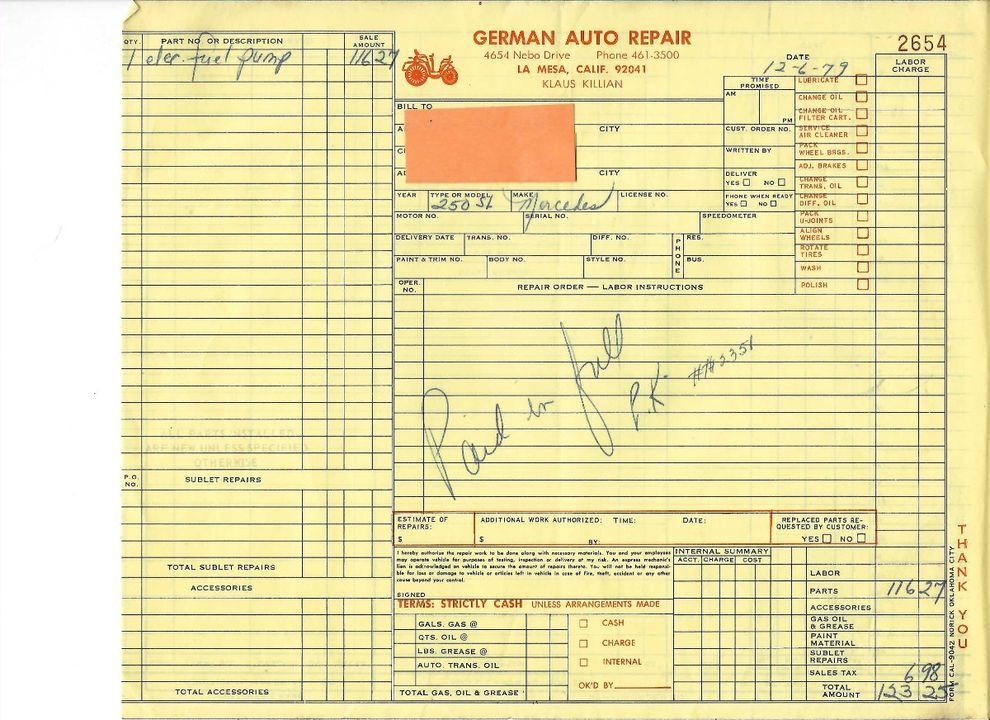 GERMAN AUTO REPAIR
4654 Nebo Drive Phone 461-3500
LA MESA, CALIF. 92041
KLAUS KILLIAN
2654
DATE
12-6-79
QTY. PART NO. OR DESCRIPTION SALE AMOUNT
1 elec. fuel pump 116 27
ALL PARTS INSTALLED
ARE NEW UNLESS SPECIFIED
OTHERWISE
P.O. NO. SUBLET REPAIRS
TOTAL SUBLET REPAIRS
ACCESSORIES
TOTAL ACCESSORIES
BILL TO
CITY
CITY
TIME PROMISED
AM
PM
CUST. ORDER NO.
WRITTEN BY
DELIVER
YES NO
PHONE WHEN READY
YES NO
YEAR TYPE OR MODEL MAKE LICENSE NO.
250 SL Mercedes
MOTOR NO. SERIAL NO. SPEEDOMETER
DELIVERY DATE TRANS. NO. DIFF. NO. PHONE RES.
PAINT & TRIM NO. BODY NO. STYLE NO. BUS.
LABOR CHARGE
LUBRICATE
CHANGE OIL
CHANGE OIL FILTER CART.
SERVICE AIR CLEANER
PACK WHEEL BRGS.
ADJ. BRAKES
CHANGE TRANS. OIL
CHANGE DIFF. OIL
PACK U-JOINTS
ALIGN WHEELS
ROTATE TIRES
WASH
POLISH
OPER. NO. REPAIR ORDER — LABOR INSTRUCTIONS
Paid in full
##3351
ESTIMATE OF REPAIRS:
$
ADDITIONAL WORK AUTHORIZED: TIME: DATE:
$ BY:
REPLACED PARTS REQUESTED BY CUSTOMER:
YES NO
I hereby authorize the repair work to be done along with necessary materials. You and your employees
may operate vehicle for purposes of testing, inspection or delivery at my risk. An express mechanic's
lien is acknowledged on vehicle to secure the amount of repairs thereto. You will not be held responsi-
ble for loss or damage to vehicle or articles left in vehicle in case of fire, theft, accident or any other
cause beyond your control.
SIGNED
TERMS: STRICTLY CASH UNLESS ARRANGEMENTS MADE
GALS. GAS @
QTS. OIL @
LBS. GREASE @
AUTO. TRANS. OIL
TOTAL GAS, OIL & GREASE
CASH
CHARGE
INTERNAL
OK'D BY
INTERNAL SUMMARY
ACCT. CHARGE COST
LABOR
PARTS 116 27
ACCESSORIES
GAS OIL & GREASE
PAINT MATERIAL
SUBLET REPAIRS
SALES TAX 6 98
TOTAL AMOUNT 123 25
THANK YOU
FORM CAL-9042 NORICK OKLAHOMA CITY